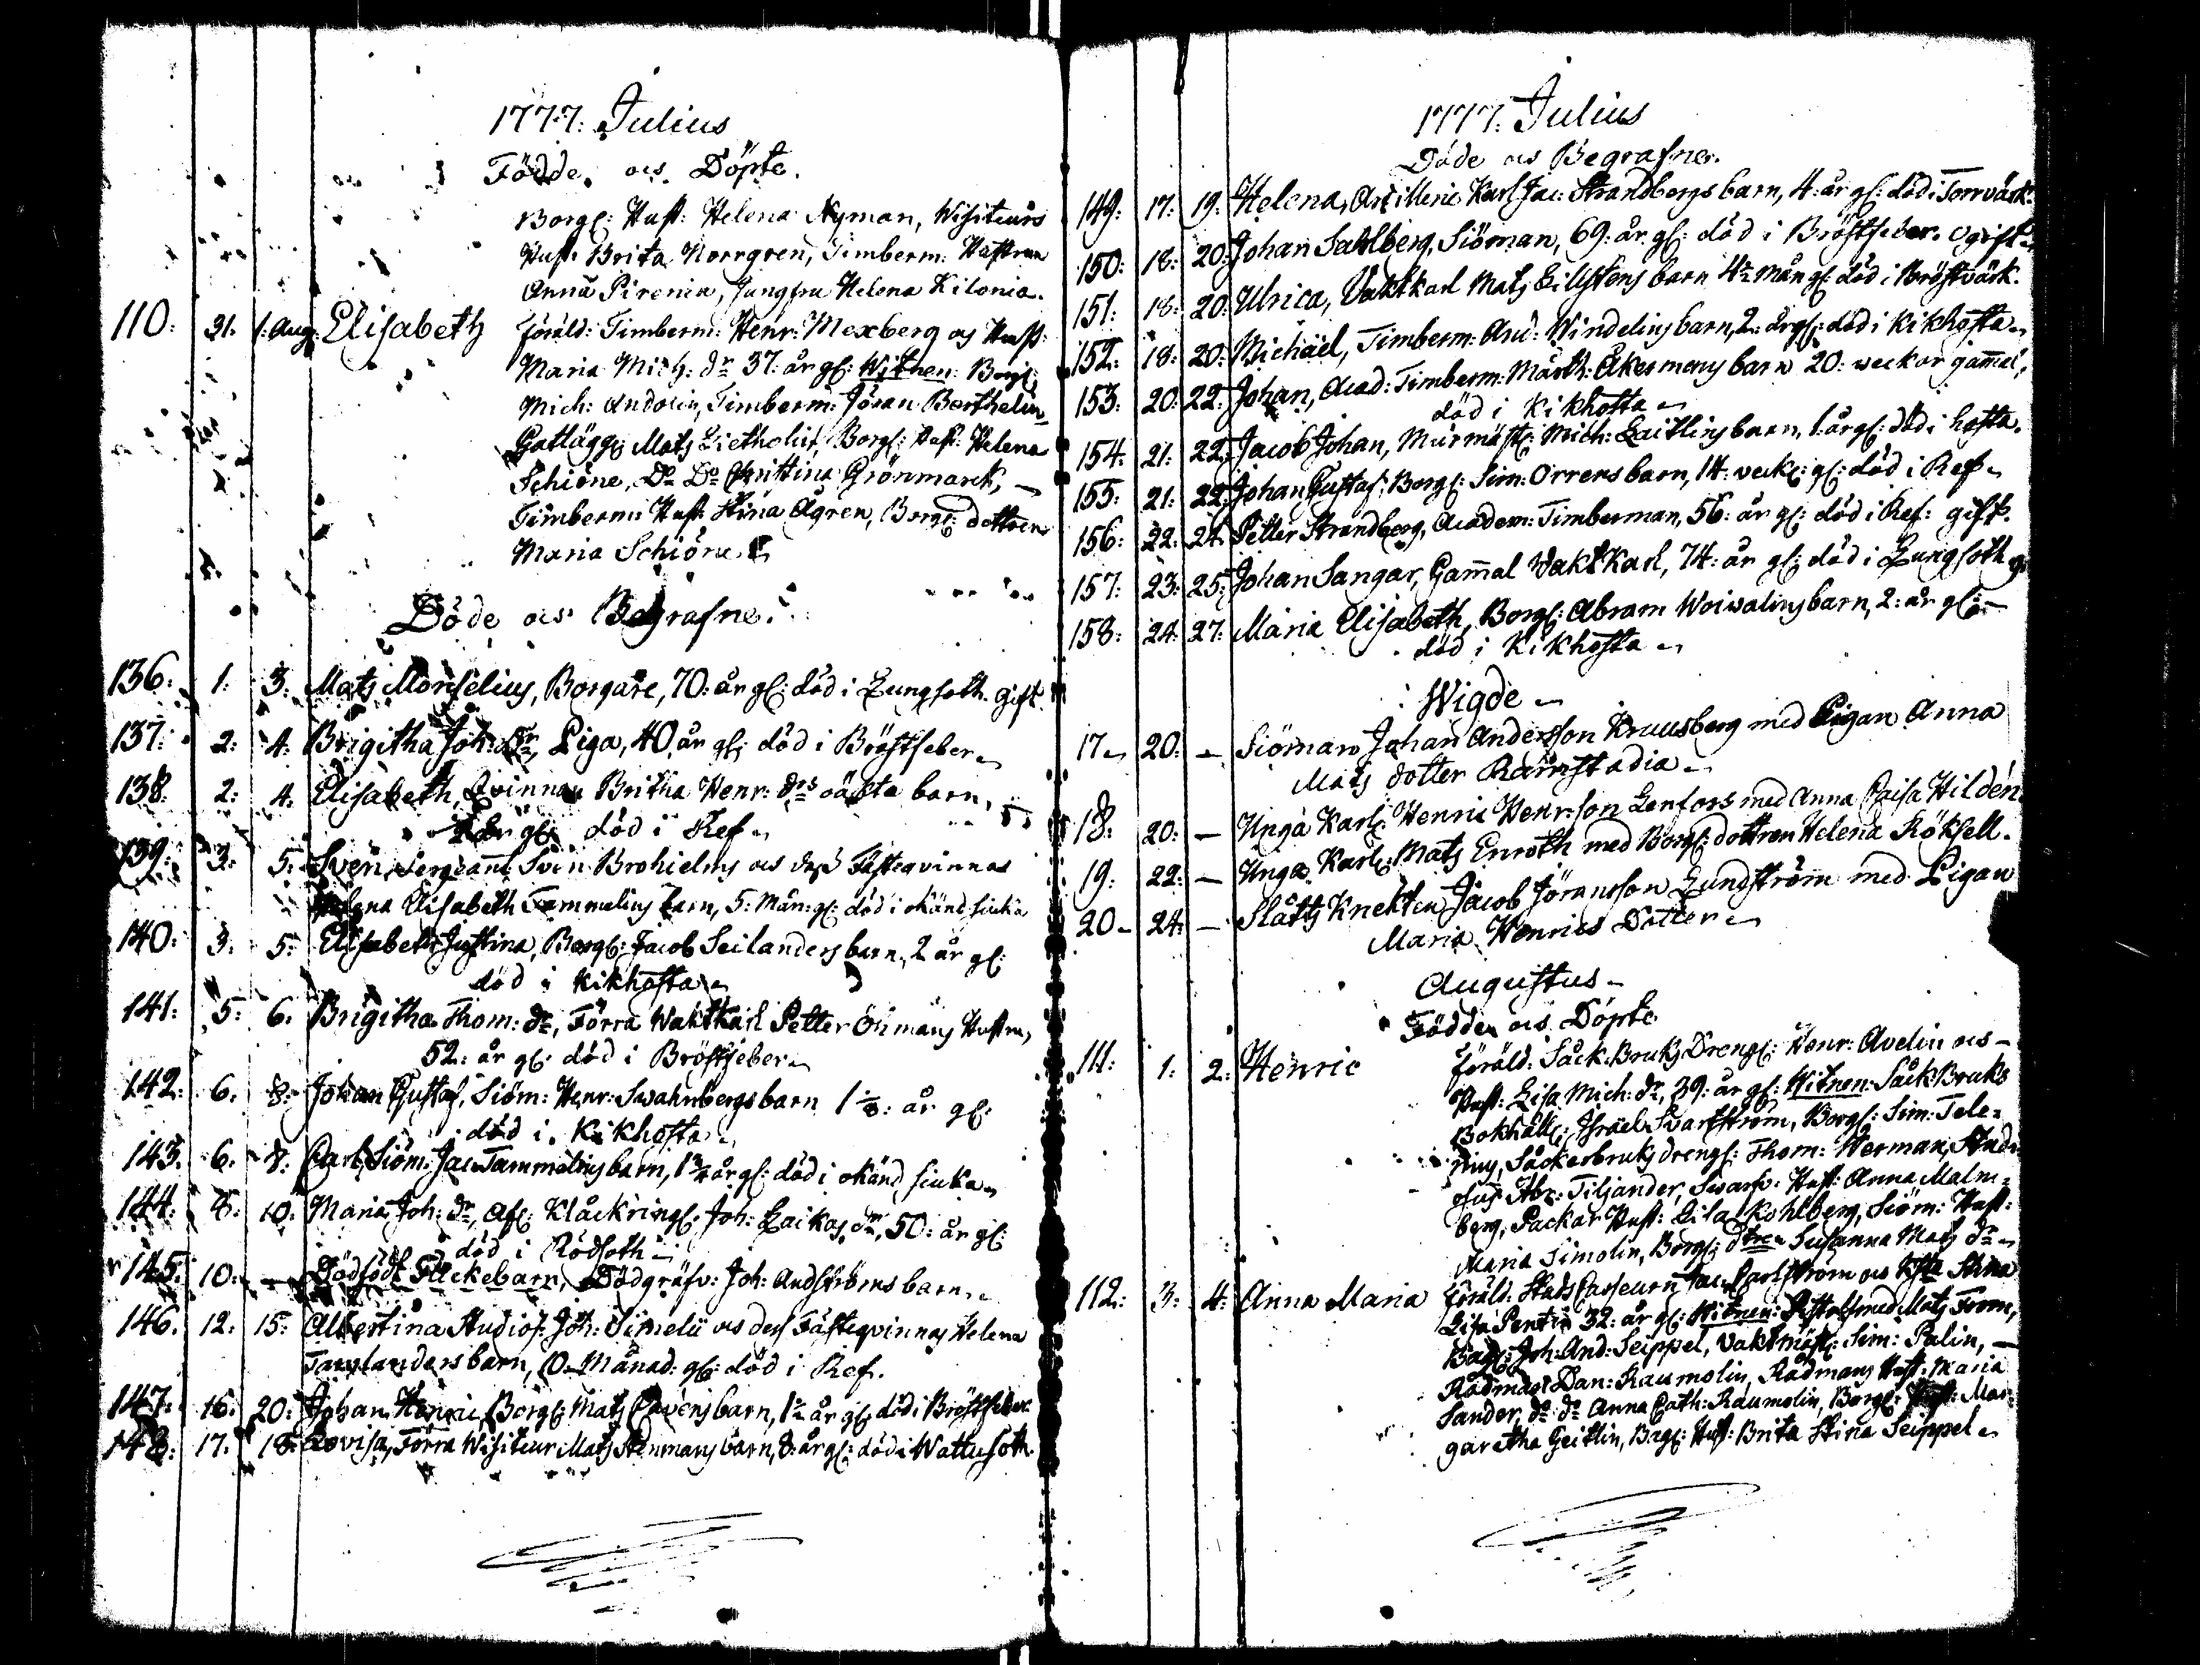 1777: Julius
Födde. och Döpte.
Borgl: Hust: Helena Nyman, Wisiteurs
Hust: Brita Norrgren, Timberm: Hustrun
Anna Pirenia, Jungfru Helena Kilonia.
110: 31. 1. Aug: Elisabeth föräld: Timberm: Henr: Mexberg och Hust:
Maria Mich: dr 37. år gl: Witnen: Borgl:
Mich: Andolin, Timberm: Jöran Berthelin,
Mats Lietholm, Borgl: Hust: Helena
Schiöne, Do Do Christina Grönmarck,
Timberm: Hust: Stina Ågren, Borgl: dottren
Maria Schiöne.
Döde och Begrafne.
136. 1. 3. Mats Monselius, Borgare, 70. år gl: död i Lungsoth. gift.
137: 2: 4. Brigitha Joh: Dr, Piga, 40 år gl: död i Bröstfeber
138. 2: 4. Elisabeth, Qvinnan Britha Henr: drs oächta barn,
år gl: död i Ref
139: 3: 5: Sven, Sergeant Sven Brohielms och dess Fästeqvinnas
Helena Elisabeth Tammelins barn, 5: Mån: gl: död i okänd siuka
140: 3: 5: Elisabeth Justina, Borgl: Jacob Seilanders barn, 2 år gl:
död i kikhosta
141: 5: 6. Brigitha Thom: dr, Förra Waktkarl Petter Öhmans Hustru,
52: år gl: död i Bröstfeber
142: 6. 8: Johan Gustaf, Siöm: Henr: Swahnbergs barn 1 år gl:
död i. Kikhosta
143. 6. 8: Carl, Siöm: Jac: Tammelins barn, 1 3/4 år gl: död i okänd siuka
144. 8. 10: Maria Joh: dr, Afl: Klåckringl: Joh: Laikas dr, 50: år gl:
död i Rödsoth
145: 10: — Dödfödt Flickebarn, Dödgräfv: Joh: Andströms barn.
146. 12: 15: Albertina Studios: Joh: Simelii och dess Fästeqvinnas Helena
barn, 10. Månad: gl: död i Ref.
147. 16. 20: Johan Henric, Borgl: Mats Pavens barn, 1 1/2 år gl: död i Bröstfeber
148: 17. 18: Lovisa, Förra Wisiteur Mats Stenmans barn, 8. år gl: död i Wattusoth
1777. Julius
Döde och Begrafne.
149: 17: 19: Helena, Artillerie Karl Jac: Strandbergs barn, 4: år gl: död i Torrvärk.
150: 18: 20: Johan Sahlberg, Siöman, 69: år gl: död i Bröstfeber. Ogift
151: 18: 20: Ulrica, Vaktkarl Mats Lillstens barn 4 1/2 mån gl: död i Bröstvärk.
152: 18: 20: Michäel, Timberm: And: Windelins barn, 2: år gl: död i Kikhosta
153: 20: 22: Johan, Acad: Timberm: Märth: Åkermans barn 20: weckor gammal,
död i Kikhosta
154. 21: 22: Jacob Johan, Murmäst: Mich: Laitlins barn, 1: år gl: död i hosta.
155: 21: 22: Johan Gustaf, Borgl: Sim: Orrens barn, 14: veck: gl: död i Ref
156: 22: 24 Petter Strandberg, Academ: Timberman, 56: år gl: död i Ref: gift.
157: 23: 25: Johan Sangar, Gammal Vaktkarl, 74: år gl: död i Lungsoth
158: 24: 27: Maria Elisabeth, Borgl: Abram Woiwalins barn, 2: år gl:
död i Kikhosta
Wigde
17 20: — Siöman Johan Andersson Kruusberg med Pigan Anna
Mats dotter Ramstadia
18: 20: — Unga Karl: Henric Henr:son Lenfors med Anna Caisa Hildén
19: 22: — Unga Karl: Mats Enroth med Borgl: dottren Helena Rökfell.
20 24: — Slåtts Knekten Jacob Jöransson Lundström med Pigan
Maria Henrics Dotter
Augustus
Födde och Döpte
111: 1: 2: Henric föräld: Såck: Bruks Drengl: Henr: Avelin och
Hust: Lisa Mich: dr, 39: år gl: Witnen: Såck Bruks
Bokhåll: Israel Svartström, Borgl: Sim: Tele=
nius, Såckerbruks drengl: Thom: Werman, Stude
Abr: Tiljander, Swarfv: Hust: Anna Malm=
berg, Packar Hust: Lisa Kohlberg, Siöm: Hust:
Maria Simolin, Borgl: dtren Susanna Mats dr
112: 3: 4: Anna Maria föräld: Jac: Carlström och Stina
Lisa Pentin 32: år gl: Witnen: Mats From,
Joh: And: Seippel, Vaktmäst: Sim: Palin,
Rådman Dan: Raumolin, Rådmans Hust: Maria
Sander, do: do Anna Cath: Raumolin, Borgl: Hust: Mar=
garetha Geitlin, Bagl: Hust: Brita Stina Seippel